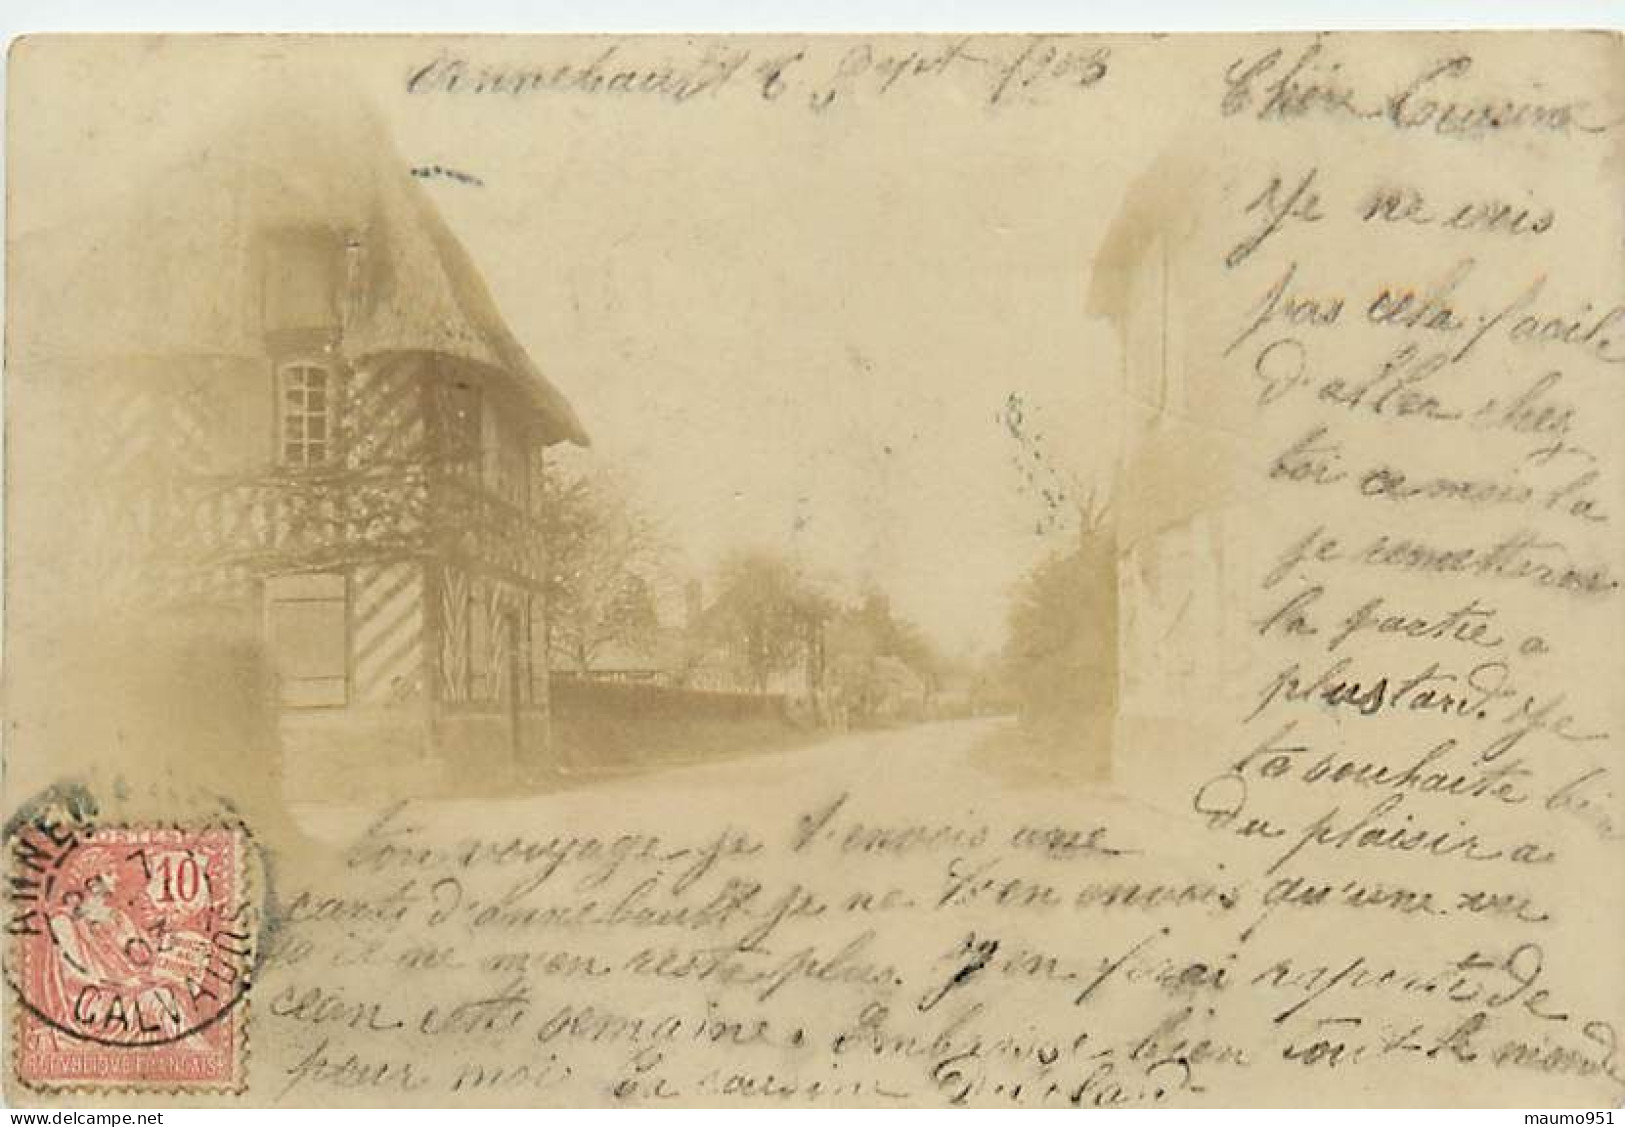 Annebault 6 Sept 1903
Chère Cousine
Je ne vois
pas cela facile
d'aller chez
toi ce mois la
je remetterai
la partie a
plustard. Je
te souhaite bien
du plaisir a
ton voyage je t'envois une
carte d'annebault je ne t'en envois qu'une vu
qu il ne m'en reste plus. J'en ferai
cette semaine. Embrasse bien tout le monde
pour moi ta cousine
10
ANNEB
CALVADOS
REPUBLIQUE FRANÇAISE
maumo951